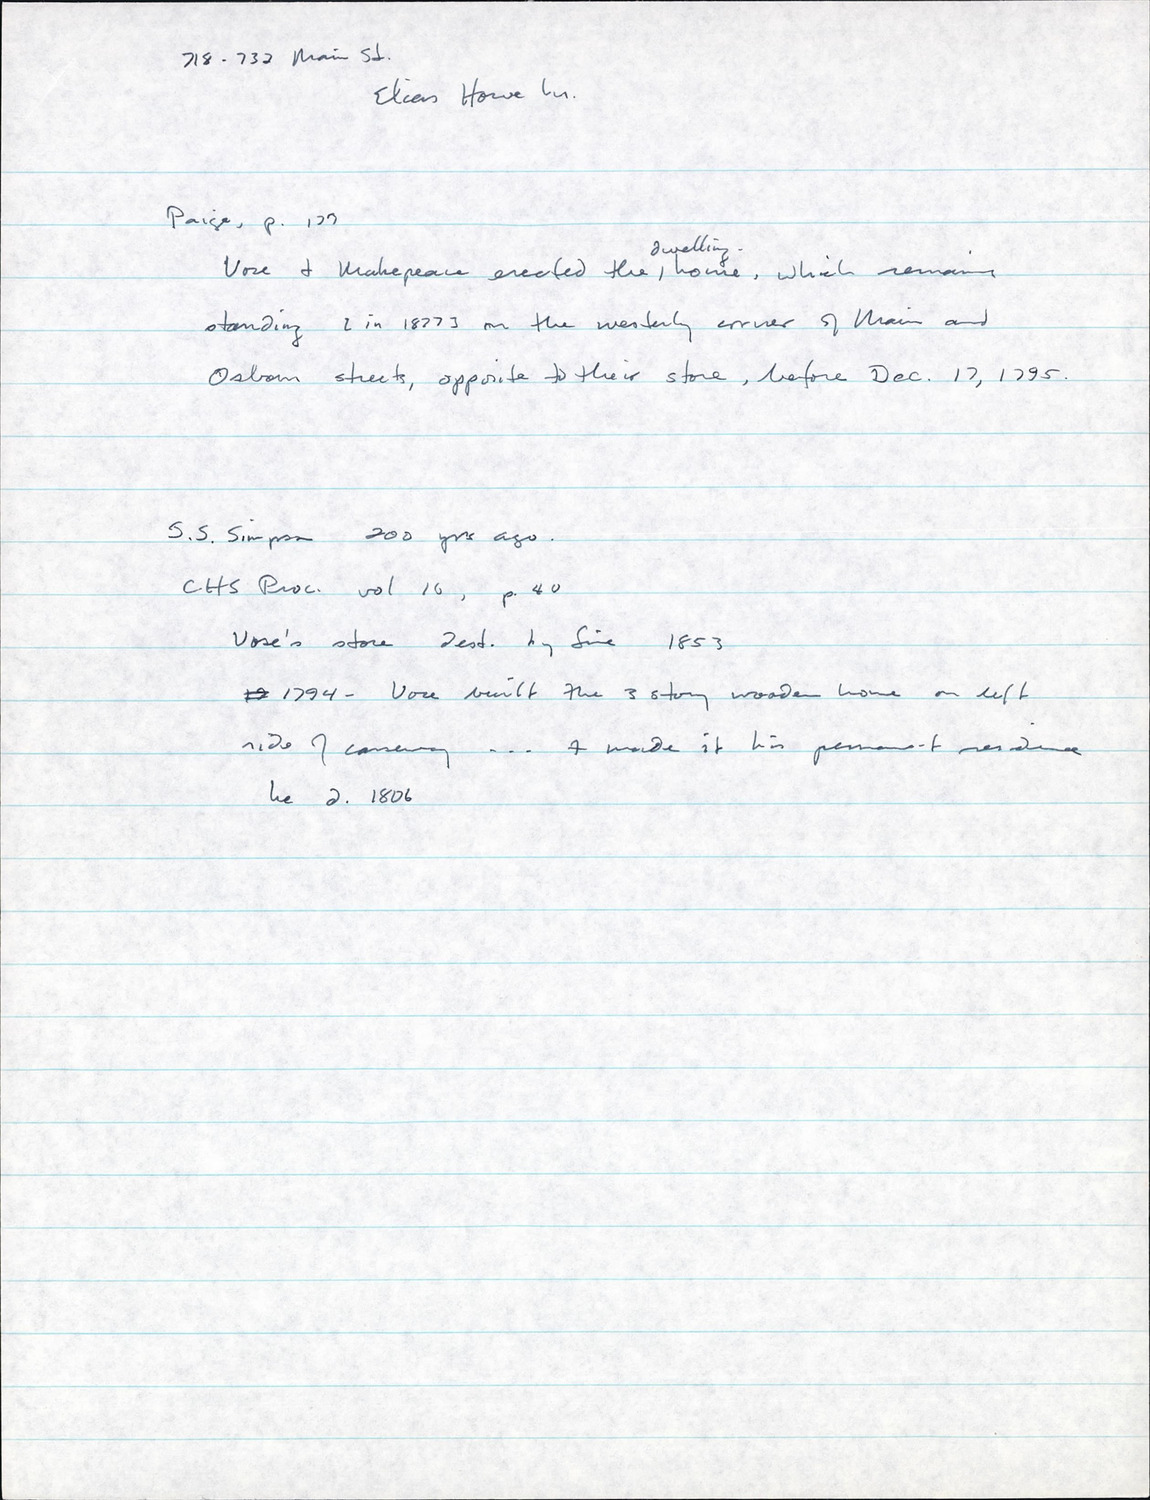 718-732 Main St.
Elias Howe
Paige, p. 177
dwelling-
Vose & Makepeace erected the house, which remains
standing [in 1877] on the westerly corner of Main and
Osborn streets, opposite to their store, before Dec. 17, 1795.
S.S. Simpson 200 yrs ago.
CHS Proc. vol 16, p. 40
Vose's store dest. by fire 1853
1794 - Vose built the 3 story wooden house on left
side of causeway ... & made it his permanent residence
he d. 1806